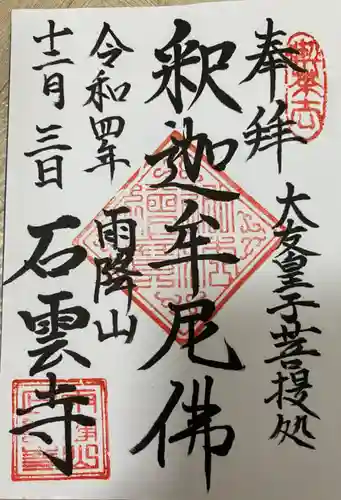 奉拝
大友皇子菩提処
釈迦牟尼佛
令和四年
雨降山
十二月三日
石雲寺